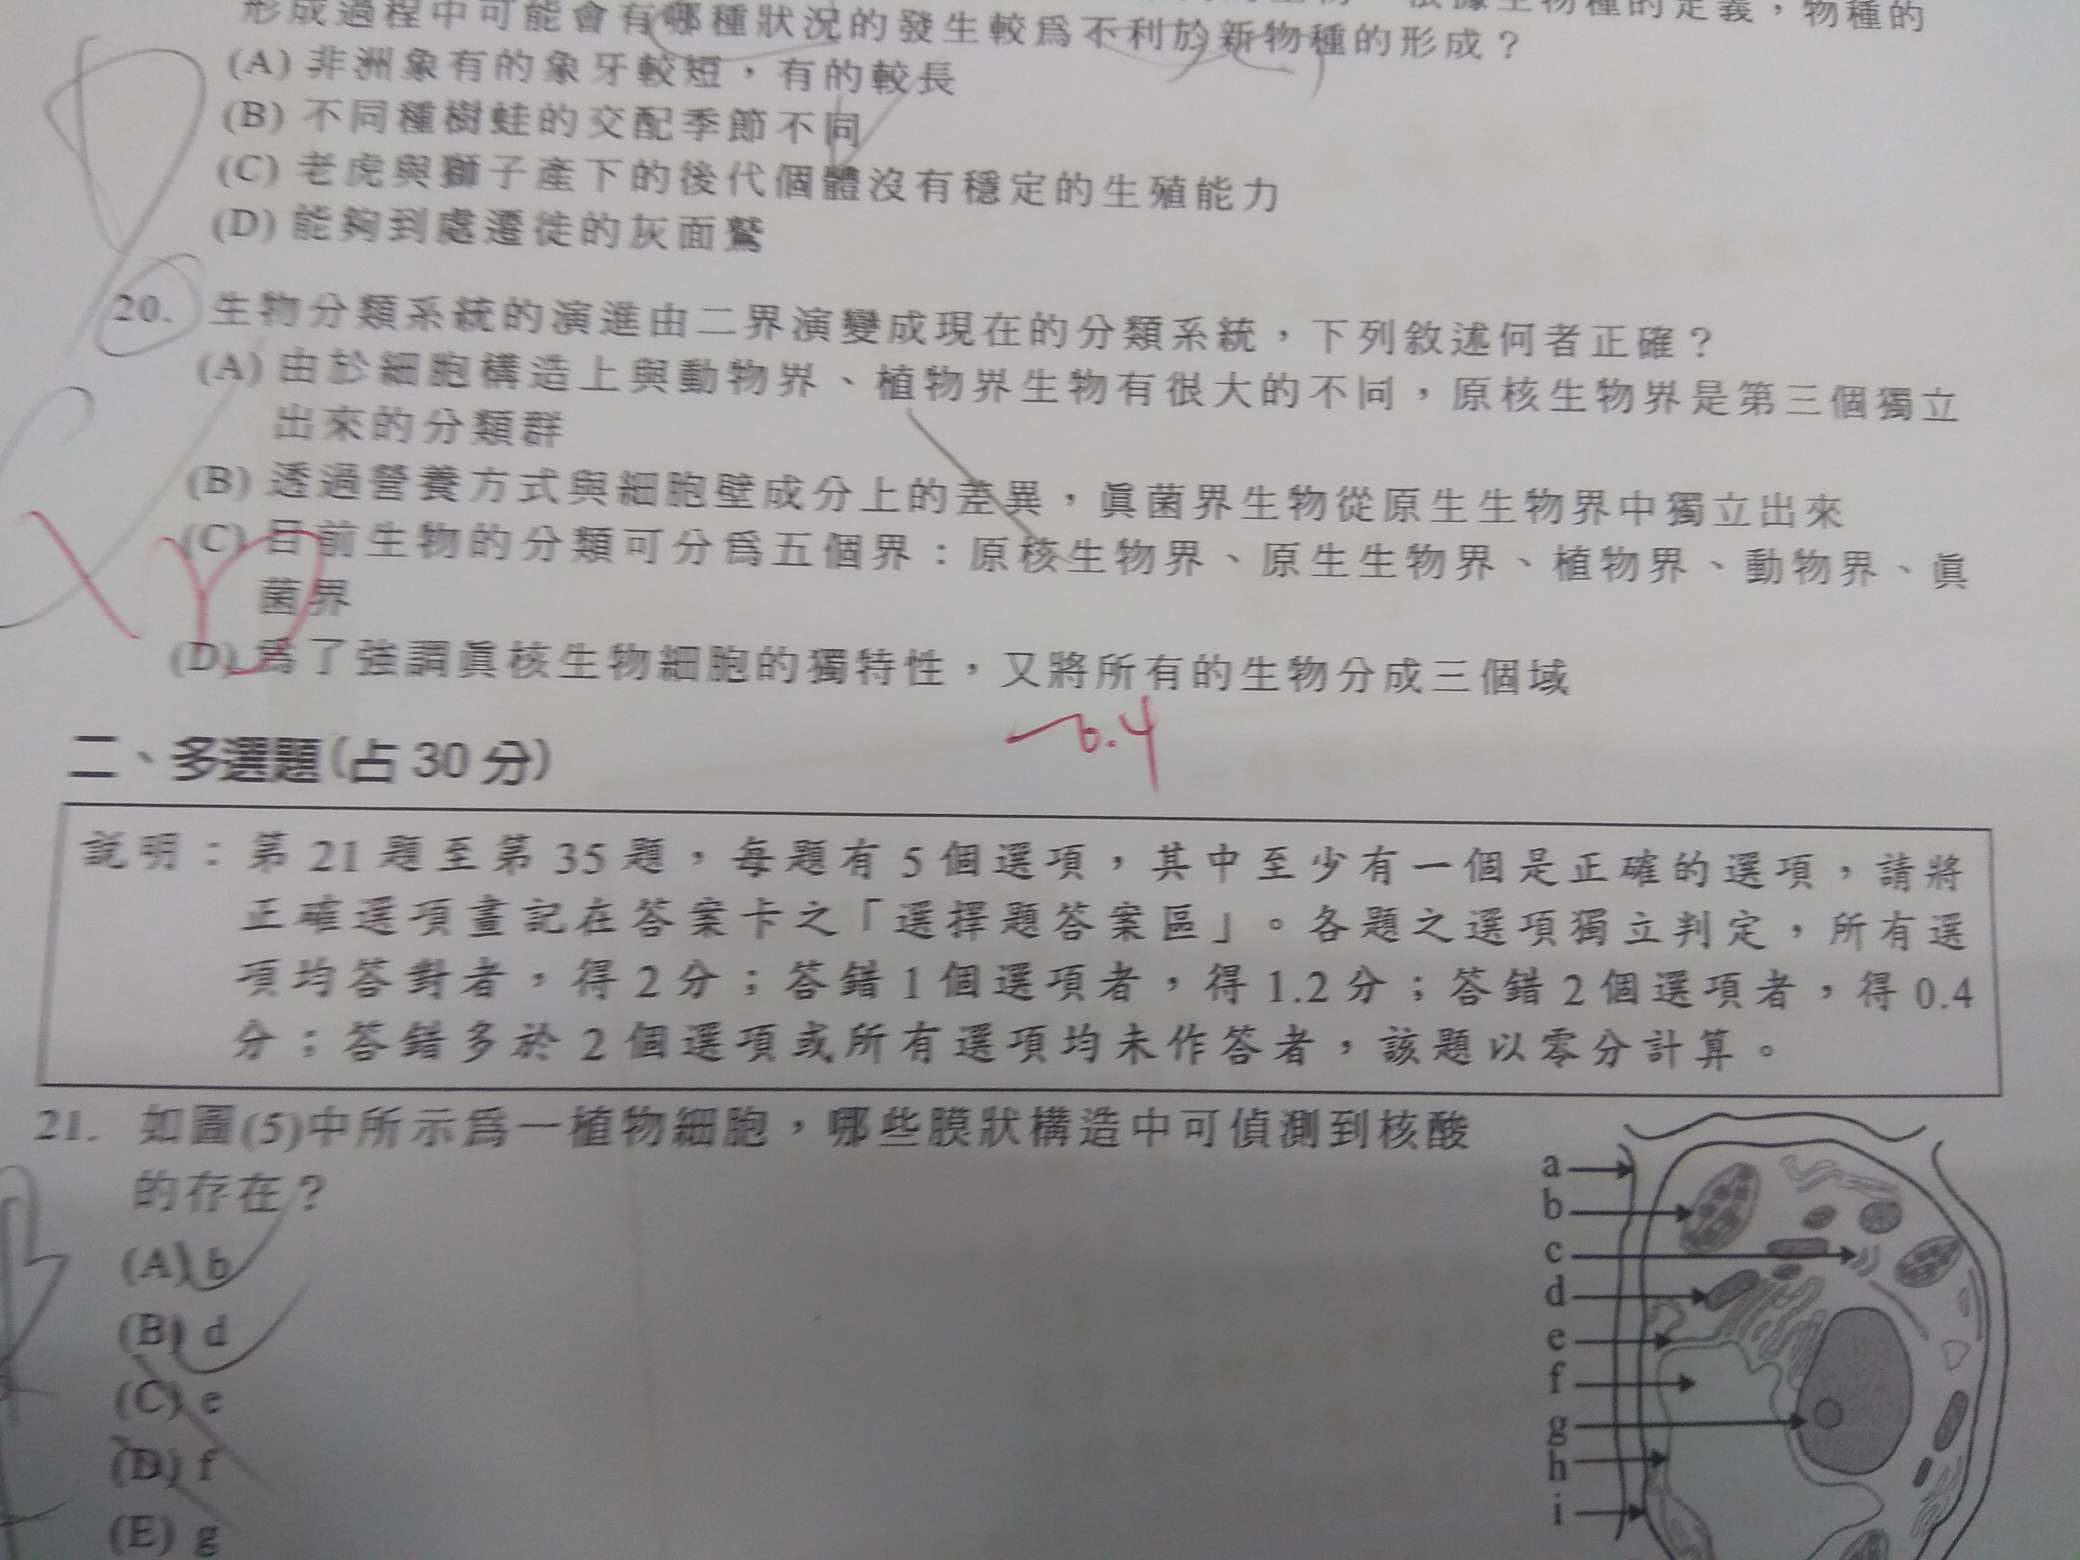 形成過程中可能會有哪種狀況的發生較爲不利於新物種的形成？
(A) 非洲象有的象牙較短，有的較長
(B) 不同種樹蛙的交配季節不同
(C) 老虎與獅子產下的後代個體沒有穩定的生殖能力
(D) 能夠到處遷徙的灰面鷲
20. 生物分類系統的演進由二界演變成現在的分類系統，下列敘述何者正確？
(A) 由於細胞構造上與動物界、植物界生物有很大的不同，原核生物界是第三個獨立
出來的分類群
(B) 透過營養方式與細胞壁成分上的差異，眞菌界生物從原生生物界中獨立出來
(C) 目前生物的分類可分爲五個界：原核生物界、原生生物界、植物界、動物界、眞
菌界
(D) 爲了強調眞核生物細胞的獨特性，又將所有的生物分成三個域
-0.4
二、多選題(占 30 分)
說明：第 21 題至第 35 題，每題有 5 個選項，其中至少有一個是正確的選項，請將
正確選項畫記在答案卡之「選擇題答案區」。各題之選項獨立判定，所有選
項均答對者，得 2 分；答錯 1 個選項者，得 1.2 分；答錯 2 個選項者，得 0.4
分；答錯多於 2 個選項或所有選項均未作答者，該題以零分計算。
21. 如圖(5)中所示爲一植物細胞，哪些膜狀構造中可偵測到核酸
的存在？
(A) b
(B) d
(C) e
(D) f
(E) g
a
b
c
d
e
f
g
h
i